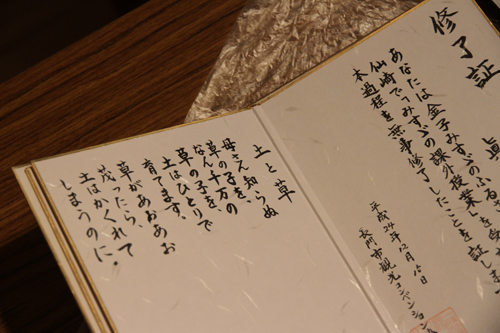 修了証
眞
あなたには金子みすゞのふるさ
仙崎で「みすゞの課外授業」を受
本過程を無事修了したことを証しま
平成24年12月
長門市観光コンベンション
土と草
母さん知らぬ
草の子を、
なん千万の
草の子を、
土はひとりで
育てます。
草があおあお
茂ったら、
土はかくれて
しまうのに。